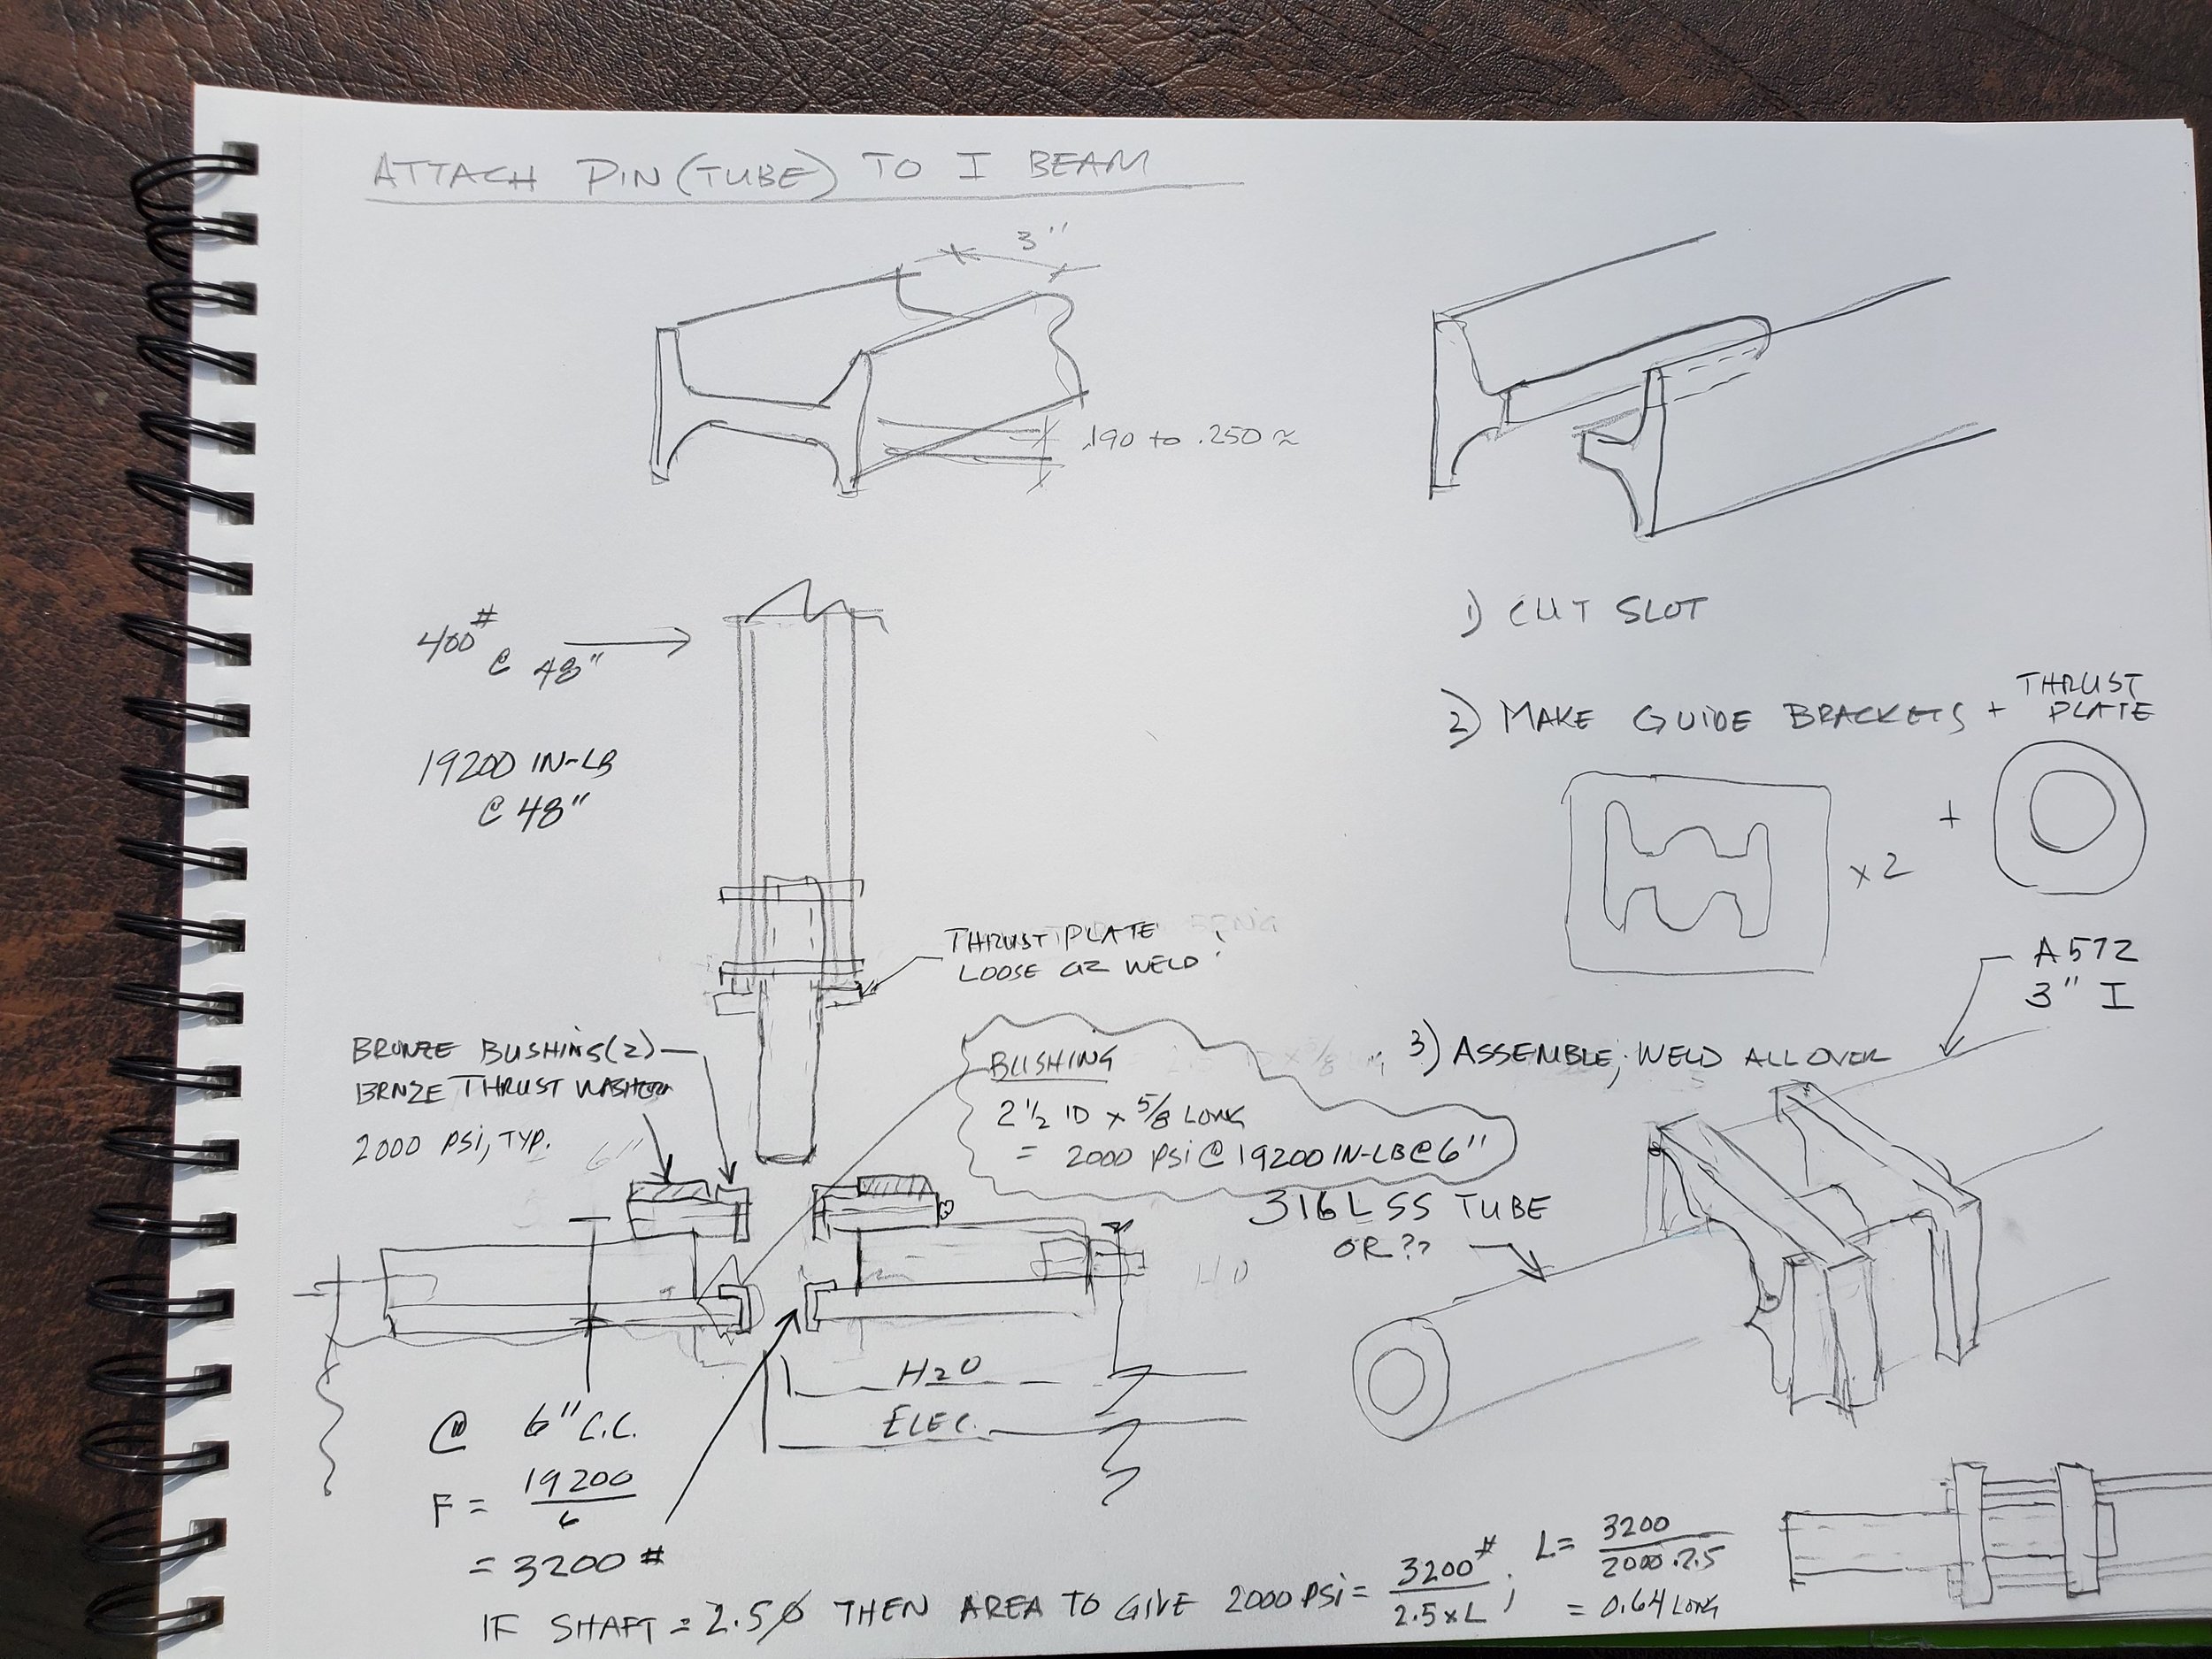 ATTACH PIN (TUBE) TO I BEAM
3"
.190 to .250 ≈
400#
@ 48"
19200 IN-LB
@ 48"
THRUST PLATE
LOOSE OR WELD?
BRONZE BUSHING(2)
BRNZE THRUST WASHER
2000 PSI, TYP.
6"
BUSHING
2 1/2 ID x 5/8 LONG
= 2000 PSI @ 19200 IN-LB @ 6"
H2O
ELEC.
@ 6" C.C.
F = 19200/6
= 3200#
IF SHAFT = 2.5Ø THEN AREA TO GIVE 2000 PSI = 3200#/2.5xL ; L = 3200/2000·2.5
= 0.64 LONG
1) CUT SLOT
2) MAKE GUIDE BRACKETS + THRUST
PLATE
x2
+
A572
3" I
3) ASSEMBLE; WELD ALL OVER
316L SS TUBE
OR??